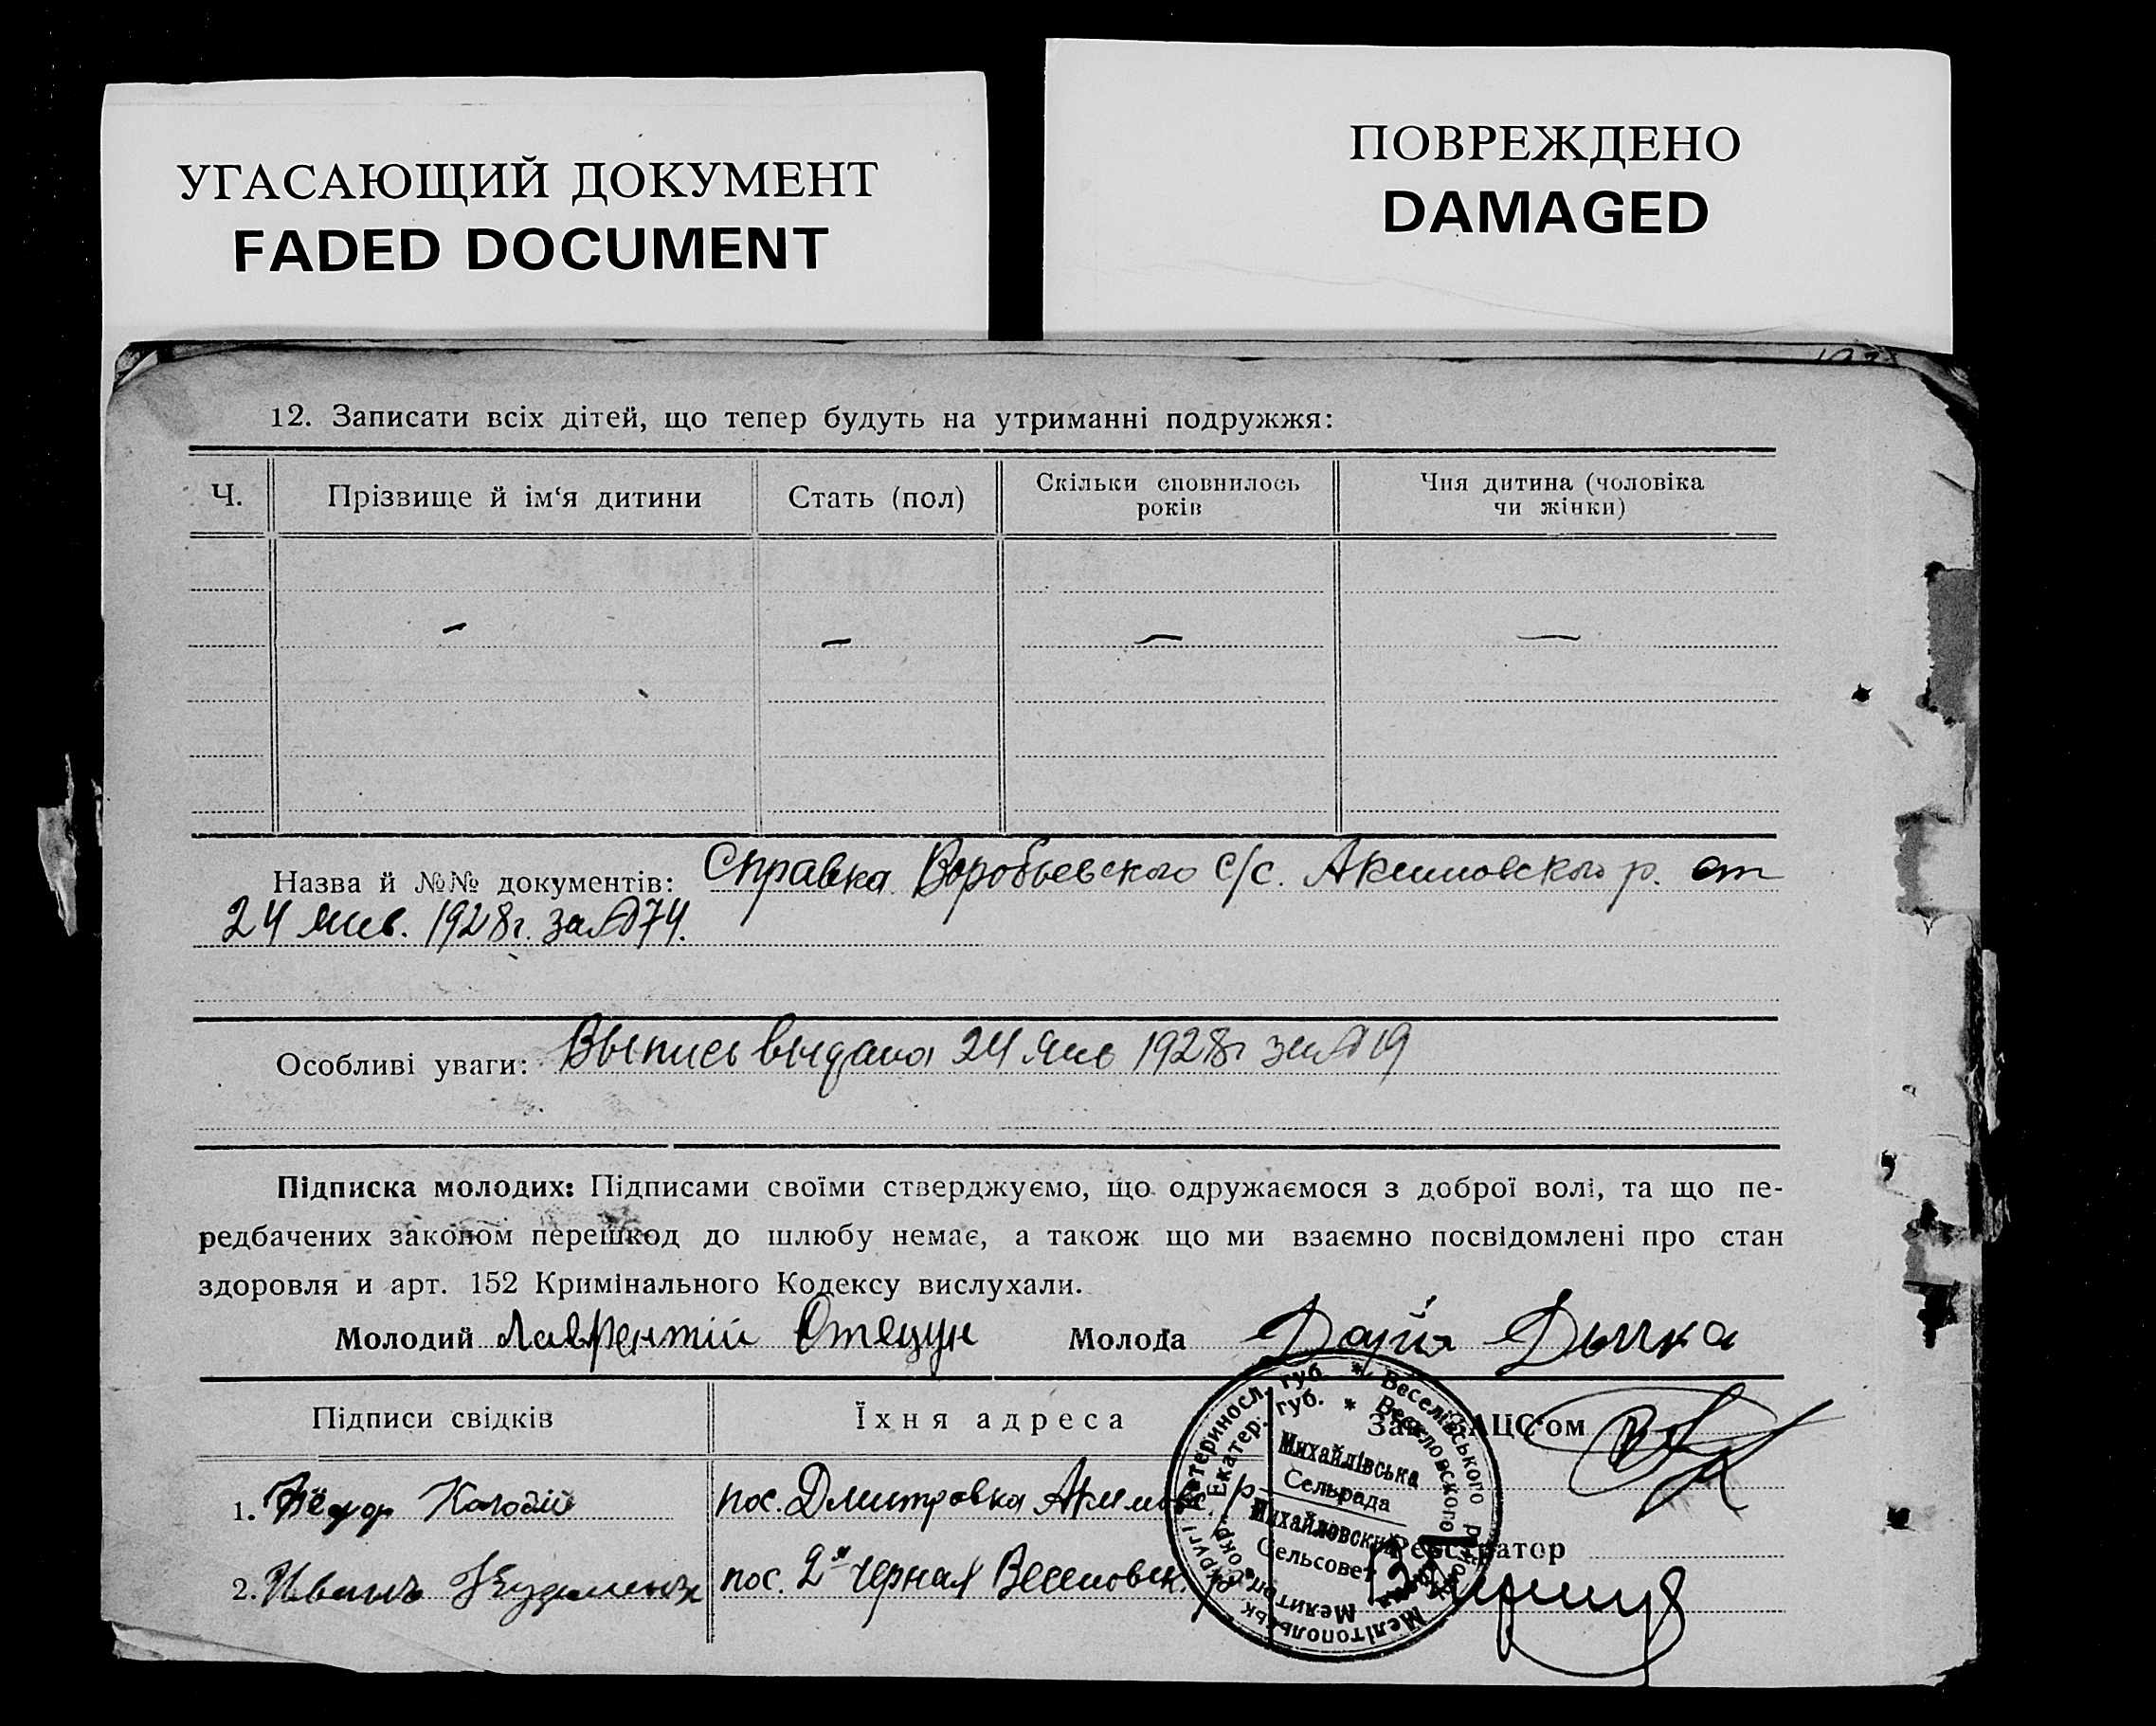 УГАСАЮЩИЙ ДОКУМЕНТ
FADED DOCUMENT
ПОВРЕЖДЕНО
DAMAGED
12. Записати всіх дітей, що тепер будуть на утриманні подружжя:
Ч. Прізвище й ім‘я дитини Стать (пол) Скільки сповнилось Чия дитина (чоловіка
років чи жінки)
— — — —
Назва й №№ документів: Справка Воробьевского с/с. Акимовского р. от
24 янв. 1928г. за № 74.
Особливі уваги: Выпись выдана 24 янв 1928г за № 19
Підписка молодих: Підписами своїми стверджуємо, що одружаємося з доброї волі, та що пе-
редбачених законом перешкод до шлюбу немає, а також що ми взаємно посвідомлені про стан
здоровля и арт. 152 Кримінального Кодексу вислухали.
Молодий Лаврентій Отецун Молода Дычка
Підписи свідків Їхня адреса Зав. ЗАЦС‘ом
1. Фёдор пос. Дмитровка Акимовс. р
Реєстратор
2. Иванъ пос. 2я Черная Веселовск. р
Катериносл. губ. * Веселівського району Мелітопольськ. округі
Екатер. губ. * Веселовского Мелитоп. окр.
Михайлівська
Сельрада
Михайловский
Сельсовет